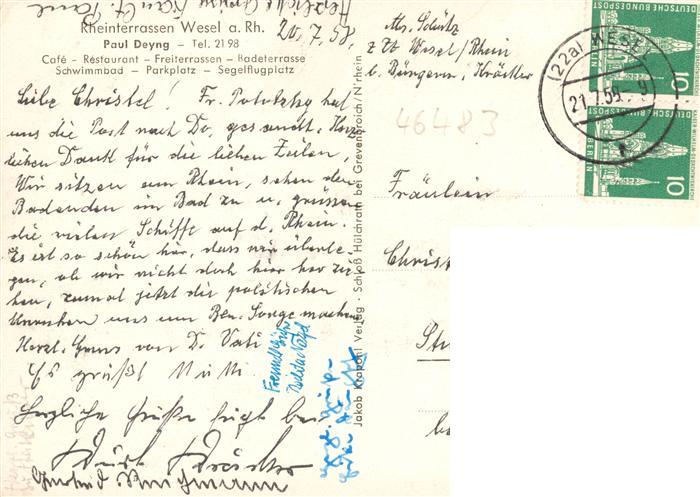 Herzliche Grüße
Rheinterrassen Wesel a. Rh.
20.7.58.
Paul Deyng – Tel. 21 98
Café - Restaurant - Freiterrassen - Badeterrasse
Schwimmbad - Parkplatz - Segelflugplatz
Liebe Christel! Fr. Pototzky hat
uns die Post nach Do. gesandt. Herz-
lichen Dank für die lieben Zeilen,
Wir sitzen am Rhein, sehen den
Badenden im Bad zu u. grüssen
die vielen Schiffe auf d. Rhein.
Es ist so schön hier, dass wir überle-
gen, ob wir nicht doch hier her zie-
hen, zumal jetzt die politischen
Unruhen uns um Ber. Sorge machen.
Herzl. Gruss von D. Vati
Es grüßt Mutti
Herzliche Grüße fügt bei
Jakob Krapohl Verlag · Schloß Hülchrath bei Grevenbroich/N'rhein
Abs. Schütz
z Zt Wesel/Rhein
b.
46483
Fräulein
Christ
St
be
(22a) WESEL
21.7.58.-9
DEUTSCHE BUNDESPOST
BERLIN
10
DEUTSCHE BUNDESPOST
BERLIN
10